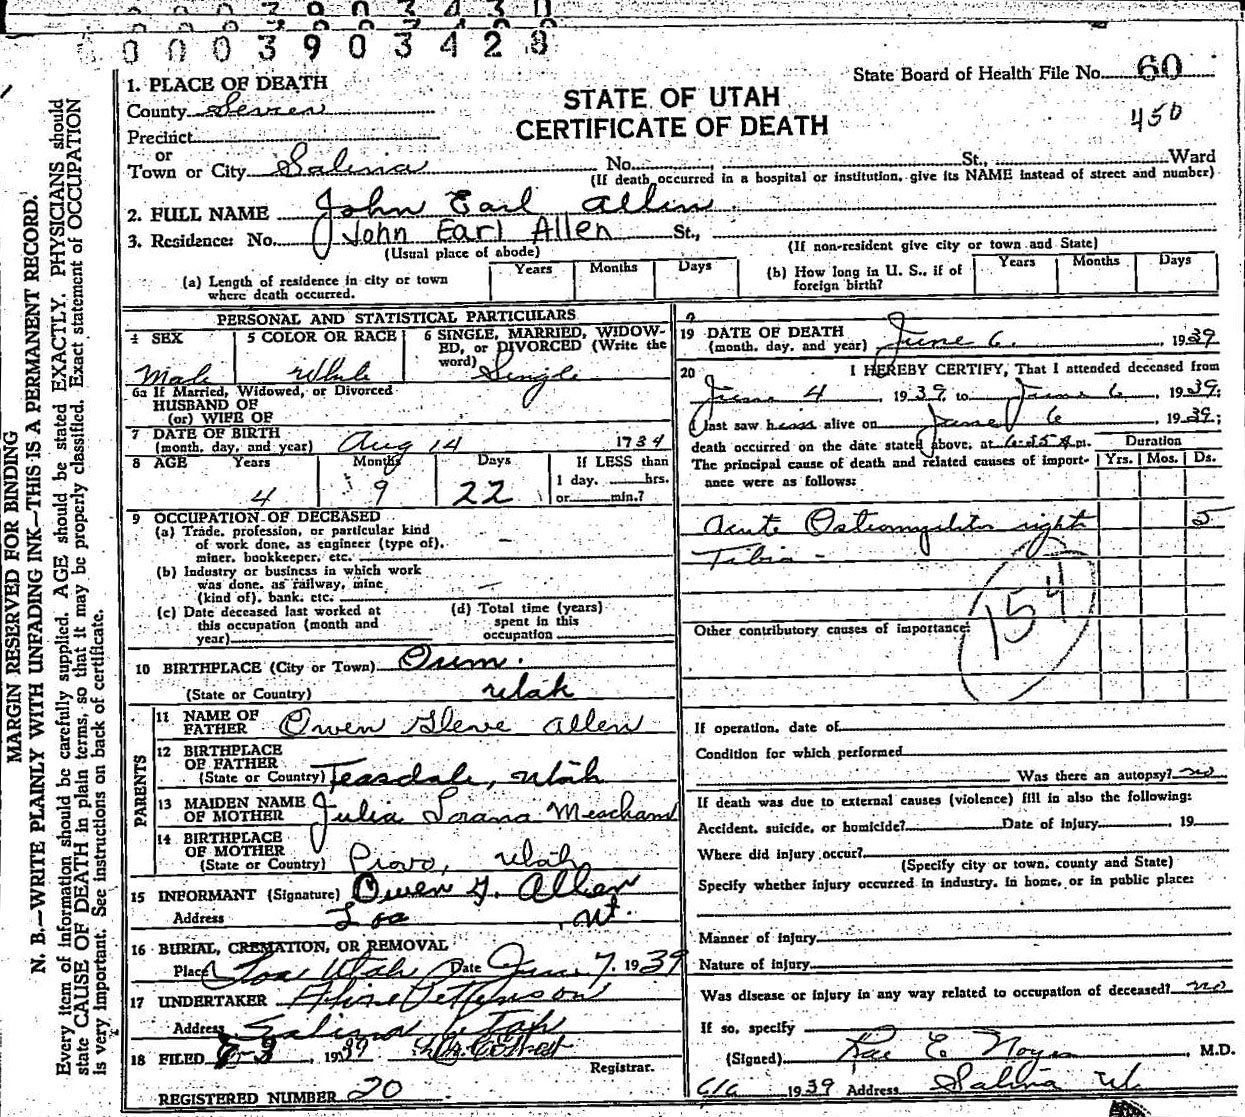 0 0 0 3 9 0 3 4 2 8
State Board of Health File No. 60
450
STATE OF UTAH
CERTIFICATE OF DEATH
1. PLACE OF DEATH
County Sevier
Precinct
or
Town or City Salina No. , St., Ward
(If death occurred in a hospital or institution, give its NAME instead of street and number)
2. FULL NAME John Earl Allen
3. Residence: No. John Earl Allen St.,
(Usual place of abode) (If non-resident give city or town and State)
(a) Length of residence in city or town where death occurred. Years Months Days
(b) How long in U. S., if of foreign birth? Years Months Days
PERSONAL AND STATISTICAL PARTICULARS
4 SEX
Male
5 COLOR OR RACE
White
6 SINGLE, MARRIED, WIDOWED, or DIVORCED (Write the word)
Single
6a If Married, Widowed, or Divorced
HUSBAND OF
(or) WIFE OF
7 DATE OF BIRTH
(month, day, and year) Aug 14 1934
8 AGE Years Months Days If LESS than
4 9 22 1 day, hrs.
or min.?
9 OCCUPATION OF DECEASED
(a) Trade, profession, or particular kind
of work done, as engineer (type of),
miner, bookkeeper, etc. —
(b) Industry or business in which work
was done, as railway, mine
(kind of), bank, etc. —
(c) Date deceased last worked at
this occupation (month and
year)
(d) Total time (years)
spent in this
occupation
10 BIRTHPLACE (City or Town) Orem.
(State or Country) Utah
PARENTS
11 NAME OF
FATHER Owen Gleve Allen
12 BIRTHPLACE
OF FATHER
(State or Country) Teasdale, Utah
13 MAIDEN NAME
OF MOTHER Julia Lorana Mescham
14 BIRTHPLACE
OF MOTHER
(State or Country) Provo, Utah
15 INFORMANT (Signature) Owen G. Allen
Address Loa, Ut.
16 BURIAL, CREMATION, OR REMOVAL
Place Loa Utah Date June 7, 1939
17 UNDERTAKER
Address Salina Utah
18 FILED , 1939
Registrar.
REGISTERED NUMBER 20
19 DATE OF DEATH
(month, day, and year) June 6. , 1939
20 I HEREBY CERTIFY, That I attended deceased from
June 4 , 1939, to June 6 , 1939;
I last saw him alive on June 6 , 1939;
death occurred on the date stated above, at 6:25 A m.
The principal cause of death and related causes of importance were as follows:
Duration
Yrs. Mos. Ds.
Acute Osteomyelitis right 5
Tibia -
154
Other contributory causes of importance:
If operation, date of
Condition for which performed
Was there an autopsy? no
If death was due to external causes (violence) fill in also the following:
Accident, suicide, or homicide? Date of injury , 19
Where did injury occur?
(Specify city or town, county and State)
Specify whether injury occurred in industry, in home, or in public place:
Manner of injury
Nature of injury
Was disease or injury in any way related to occupation of deceased? no
If so, specify
(Signed) Rae E. Noyes , M.D.
6/6 1939 Address Salina Ut.
MARGIN RESERVED FOR BINDING
N. B.—WRITE PLAINLY WITH UNFADING INK—THIS IS A PERMANENT RECORD.
Every item of information should be carefully supplied. AGE should be stated EXACTLY. PHYSICIANS should
state CAUSE OF DEATH in plain terms, so that it may be properly classified. Exact statement of OCCUPATION
is very important. See instructions on back of certificate.